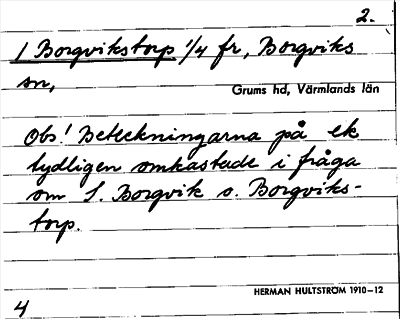 2.
1 Borgvikstorp 1/4 fr, Borgviks
sn,
Grums hd, Värmlands län
Obs! Beteckningarna på ek
tydligen omkastade i fråga
om S. Borgvik o. Borgviks-
torp.
HERMAN HULTSTRÖM 1910-12
4